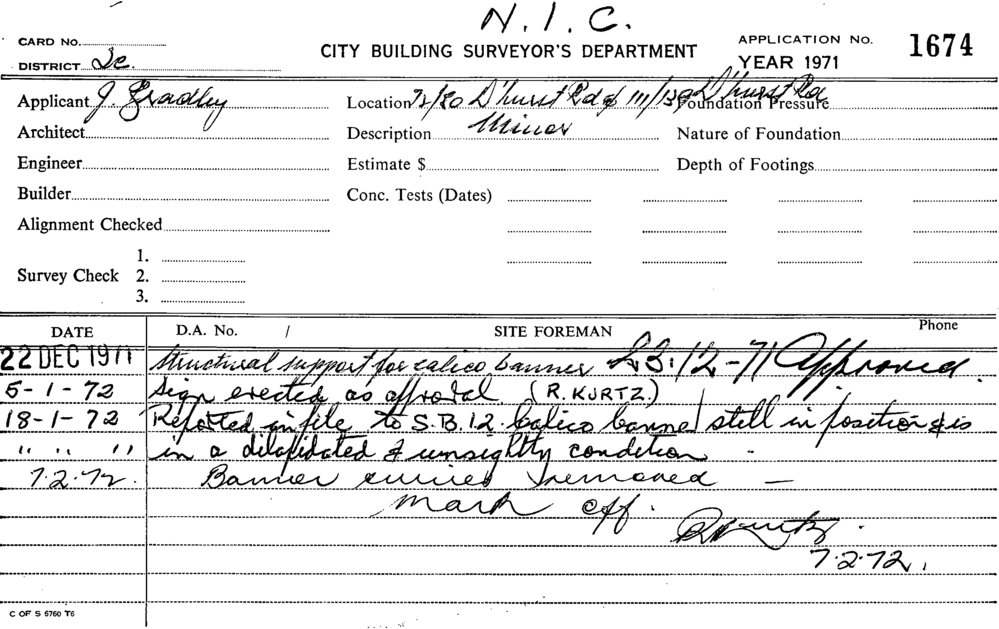 N.I.C.
CARD No.
CITY BUILDING SURVEYOR'S DEPARTMENT
APPLICATION No. 1674
DISTRICT
YEAR 1971
Applicant J. Bradley
Location 72/80 D'hurst Rd & 111/139 D'hurst Rd
Foundation Pressure
Architect
Description Minor
Nature of Foundation
Engineer
Estimate $
Depth of Footings
Builder
Conc. Tests (Dates)
Alignment Checked
1.
Survey Check 2.
3.
DATE D.A. No. / SITE FOREMAN Phone
22 DEC 1971 Structural support for calico banner 12-71 Approved.
5-1-72 Sign erected as approval (R. KURTZ)
18-1-72 Reported in file to S.B.12. Calico banner still in position & is
" " " in a dilapidated & unsightly condition -
7.2.72. Banner removed -
Mark off.
R Kurtz.
7.2.72.
C OF S 5760 T6